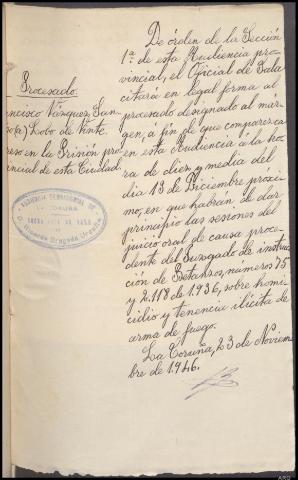 Procesado.
ncisco Vázquez San-
so (a) Lobo de Viñte.
reso en la Prisión pro-
incial de esta Ciudad.
AUDIENCIA TERRITORIAL DE
LA CORUÑA
De órden de la Sección
1ª de esta Audiencia pro-
vincial, el Oficial de Sala
citará en legal forma al
procesado designado al mar-
gen, a fin de que comparezca
en esta Audiencia a la ho-
ra de diez y media del
día 13 de Diciembre próxi-
mo, en que habrán de dar
principio las sesiones del
juicio oral de causa proce-
dente del Juzgado de instruc-
ción de Betanzos, números 75
y 2.118 de 1.936, sobre homi-
cidio y tenencia ilícita de
arma de fuego.
La Coruña, 23 de Noviem-
bre de 1.946.